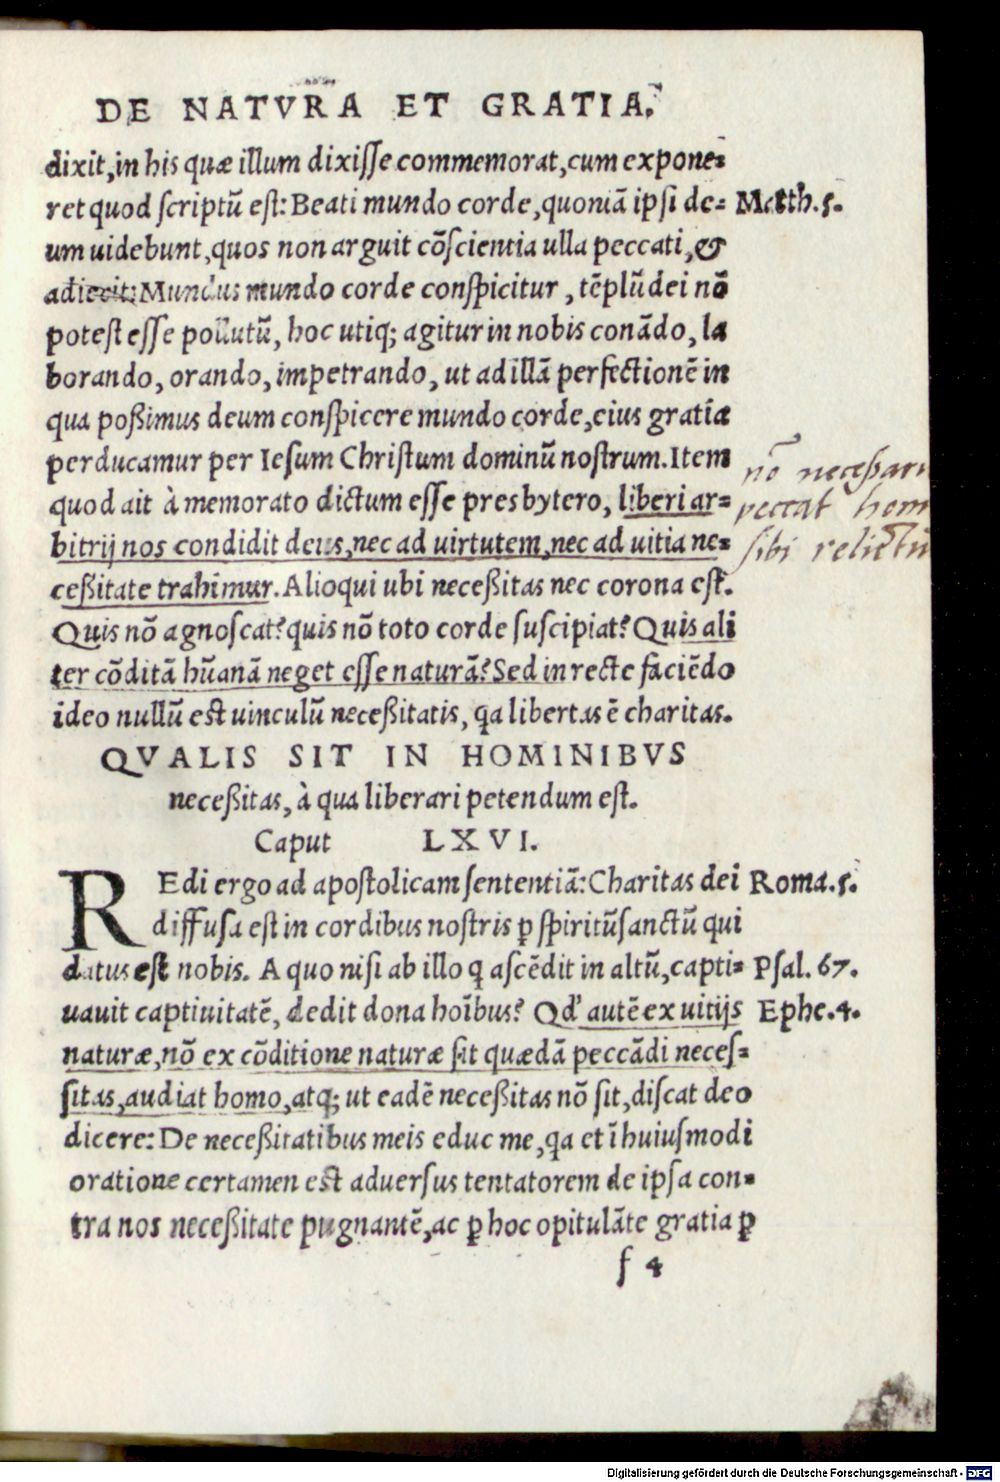 DE NATVRA ET GRATIA.
dixit, in his quæ illum dixiſſe commemorat, cum expone=
ret quod ſcriptū eſt: Beati mundo corde, quoniā ipſi de= Matth.5.
um uidebunt, quos non arguit cōſcientia ulla peccati, &
adiecit: Mundus mundo corde conſpicitur, tēplū dei nō
poteſt eſſe pollutū, hoc utiq; agitur in nobis conādo, la
borando, orando, impetrando, ut ad illā perfectionē in
qua poßimus deum conſpicere mundo corde, eius gratia
perducamur per Ieſum Chriſtum dominū noſtrum. Item
quod ait à memorato dictum eſſe presbytero, liberi ar=
bitrij nos condidit deus, nec ad uirtutem, nec ad uitia ne=
ceßitate trahimur. Alioqui ubi neceßitas nec corona eſt.
nō neceßari
peccat hom
ſibi relictū
Quis nō agnoſcat? quis nō toto corde ſuſcipiat? Quis ali
ter cōditā hūanā neget eſſe naturā? Sed in recte faciēdo
ideo nullū eſt uinculū neceßitatis, qa libertas ē charitas.
QVALIS SIT IN HOMINIBVS
neceßitas, à qua liberari petendum eſt.
Caput LXVI.
REdi ergo ad apoſtolicam ſententiā: Charitas dei Roma.5.
diffuſa eſt in cordibus noſtris ꝑ ſpiritūſanctū qui
datus eſt nobis. A quo niſi ab illo q aſcēdit in altū, capti= Pſal. 67.
uauit captiuitatē, dedit dona hoībus? Qd' autē ex uitijs Ephe.4.
naturæ, nō ex cōditione naturæ ſit quædā peccādi neceſ=
ſitas, audiat homo, atq; ut eadē neceßitas nō ſit, diſcat deo
dicere: De neceßitatibus meis educ me, qa et ī huiuſmodi
oratione certamen eſt aduerſus tentatorem de ipſa con=
tra nos neceßitate pugnantē, ac ꝑ hoc opitulāte gratia ꝑ
f 4
Digitalisierung gefördert durch die Deutsche Forschungsgemeinschaft - DFG